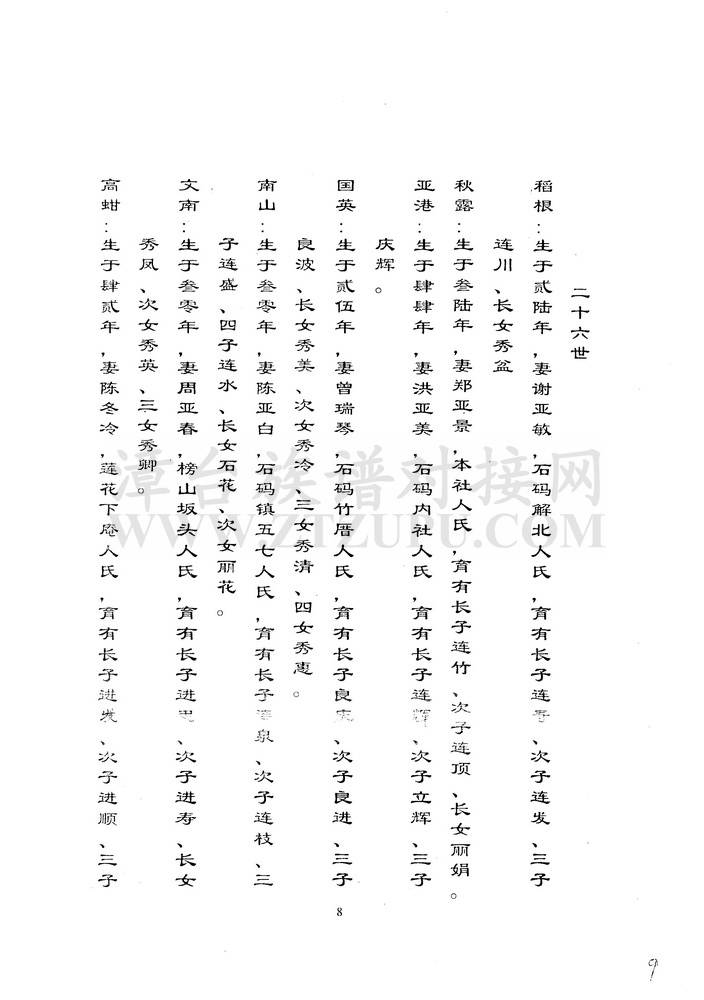 二十六世
稻根：生于贰陆年，妻谢亚敏，石码解北人氏，育有长子连寿、次子连发、三子
连川、长女秀盆
秋露：生于叁陆年，妻郑亚景，本社人氏，育有长子连竹、次子连顶、长女丽娟。
亚港：生于肆肆年，妻洪亚美，石码内社人氏，育有长子连辉、次子立辉、三子
庆辉。
国英：生于贰伍年，妻曾瑞琴，石码竹厝人氏，育有长子良庆、次子良进、三子
良波、长女秀美、次女秀冷、三女秀清、四女秀惠。
南山：生于叁零年，妻陈亚白，石码镇五七人氏，育有长子连泉、次子连枝、三
子连盛、四子连水、长女石花、次女丽花。
文南：生于叁零年，妻周亚春，榜山坂头人氏，育有长子进忠、次子进寿、长女
秀凤、次女秀英、三女秀卿。
高蚶：生于肆贰年，妻陈冬冷，莲花下庵人氏，育有长子进发、次子进顺、三子
漳台族谱对接网
WWW.ZTZUPU.COM
8
9